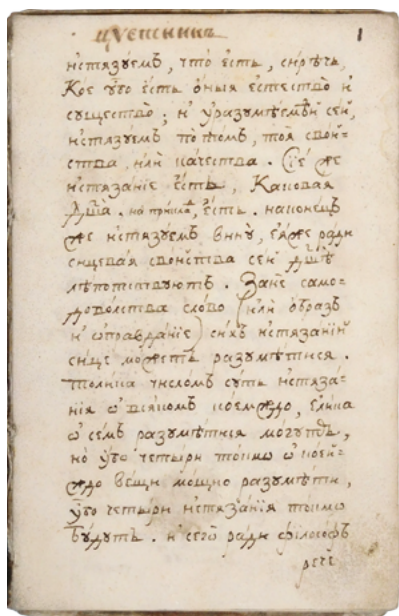 1
истязуемъ, что́ є҆сть, си́рѣчь,
Кое у҆́бо є҆́сть о҆́ныѧ є҆стество̀ и҆
существо̀; и҆ ᲂу҆разумѣ́вшѝ сѐй,
и҆стязуемъ пото́мъ, тоѧ̀ свой-
ства, илѝ ка́чества. Сїе́ же
истязанїе є҆́сть, Каковаѧ
Дш҃а̀. на примѣ, є҆́сть. наконецъ
же и҆стязуемъ винꙋ̀, є҆ѧ́же ради
сицеваѧ сво́йства сей дш҃ѣ̀
лѣпотствуютъ. Занѐ само-
довольства слово (и҆лѝ о҆́бразъ
и҆ ѡ҆правда́нїе) си́хъ и҆стязанїй
си́це мо́жетъ разумѣ́тися.
Толика числомъ су́ть и҆стяза-
нїѧ ѡ҆ всѧ́комъ кое́мждо, є҆ли́ка
ѡ҆ се́мъ разумѣ́тися мо́гутъ,
но у҆́бо четы́ри то́кмо ѡ҆ коей-
ждо ве́щи мо́щно разумѣ́ти,
у҆́бо четы́ри и҆стяза́нїѧ то́кмо
бу́дутъ. и҆ сегѡ̀ ра́ди філосо́фъ
рече́